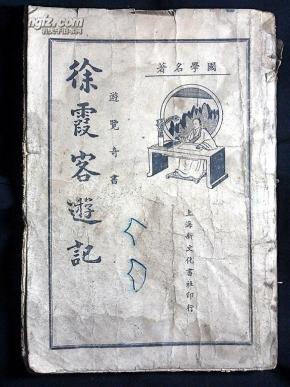 國學名著
遊覽奇書
徐霞客遊記
上海新文化書社印行